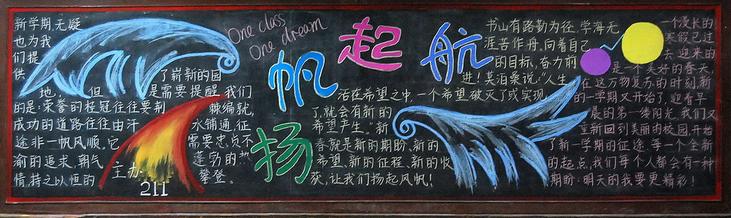 新学期,无疑
也为我
们提
供 了崭新的园
地, 但 是需要提醒我们
的是:荣誉的桂冠往往要荆 棘编就,
成功的道路往往由汗 水铺通,征
途非一帆风顺,它 需要忠贞不
渝的追求,朝气 蓬勃的热
情,持之以恒的 攀登。
主办:
211
One class
One dream
扬帆起航
书山有路勤为径,学海无
涯苦作舟,向着自己
的目标,奋力前
进!莫泊桑说:“人生
活在希望之中,一个希望破灭了或实现
了,就会有新的
希望产生。”新
春就是新的期盼、新的
希望、新的征程、新的收
获,让我们扬起风帆!
一个漫长的
寒假已过
去,迎来的
是一个美好的春天,
在这万物复苏的时刻,新
的一学期又开始了,迎着早
晨的第一缕阳光,我们又
重新回到美丽的校园,开始
了新一学期的征途。每一个全新
的起点,我们每个人都会有一种
期盼:明天的我要更精彩!